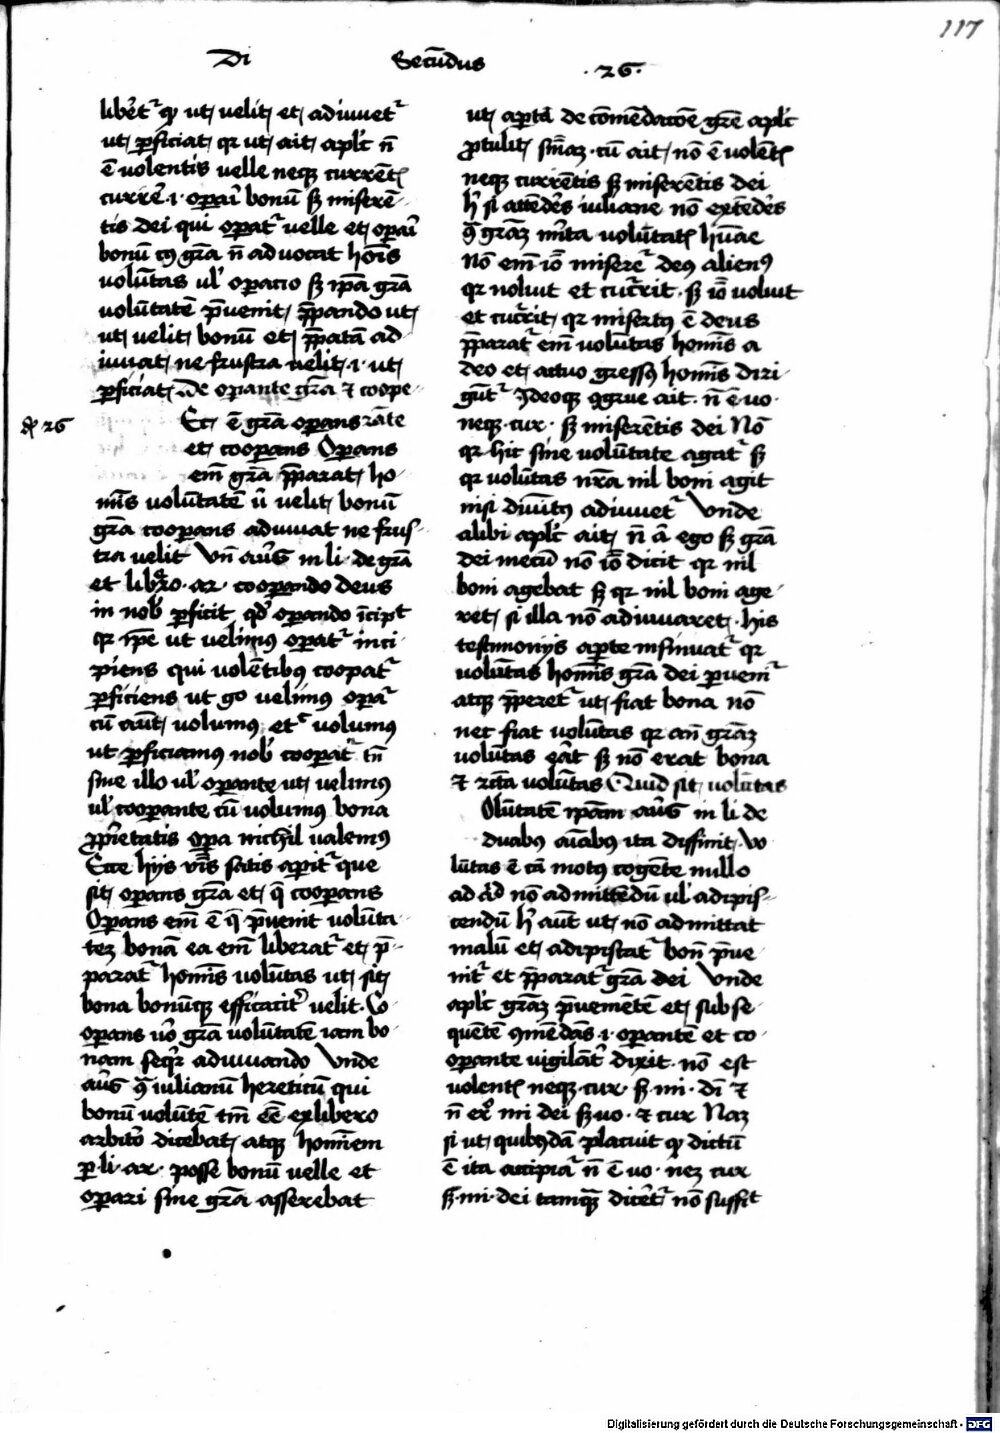 117
Di Secūdus .26.
libet͛ qͥ ut velit et adiuuet͛
ut ꝑficiat qr ut ait apl'c nō
ē uolentis uelle neqꝫ currēt
currē͛ .i. oꝑari bonū sꝫ miserē-
tis dei qui oꝑat͛ uelle et oꝑari
bonū cꝯ grā nō aduocat hoīs
uolūtas ul' oꝑatio sꝫ ip̄a grā
uolūtatē p̄uenit p̄ꝑando ut
ut velit bonū et p̄ꝑatā ad
iuuat ne frustra uelit .i. ut
ꝑficiat De oꝑante grā ⁊ cooꝑe-
di 26
Ec ē grā oꝑans rāte
et cooꝑans Oꝑans
em̄ grā p̄ꝑarat ho-
mīs uolūtatē ū velit bonū
grā cooꝑans adiuuat ne frus-
tra velit Vn̄ auḡ in li. de grā
et libro. ar. cooꝑando deus
in nob' ꝑficit qd' oꝑando īcipit
qr ip̄e ut velimꝯ oꝑat͛ inci-
piens qui volētibꝯ cooꝑat͛
ꝑficiens ut go velimꝯ oꝑat͛
cū aut volumꝯ et c̄ volumꝯ
ut ꝑficiamꝯ nob' cooꝑat͛ tn̄
sine illo ul' oꝑante ut velimꝯ
ul' cooꝑante cū volumꝯ bona
p̄pietatis oꝑa nichil ualemꝯ
Ecce hijs v̄bis satis aꝑit͛ que
sit oꝑans grā et q̄ cooꝑans
Oꝑans em̄ ē q̄ p̄uenit volūta-
tez bonā ea em̄ liberat͛ et p̄-
parat͛ homīs uolūtas ut sit
bona bonūqꝫ efficacit͛ velit. Co-
oꝑans uō grā volūtatē iam bo-
nam seqr͛ adiuuando Vnde
auḡ ꝯ̄ iulianū hereticū qui
bonū volūtē tm̄ eē ex libero
arbitō dicebat atqꝫ homīem
ꝑ li. ar. posse bonū uelle et
oꝑari sine grā asserebat
ut aꝑta de cōmēdacōe grē apl'c
ꝓtulit snīaꝫ. cū ait nō ē uolēt
neqꝫ currētis sꝫ miserētis dei
h' si attēdēs iuliane nō extēdēs
ꝯ̄ grāꝫ mīta volūtatꝭ hūae
Nō em̄ iō miseret͛ deꝯ alienꝯ
qr noluit et cucrit. sꝫ iō uoluit
et cucrit qr misertꝯ ē deus
p̄parat͛ em̄ volūtas homīs a
deo et a duo gressꝯ homīs diri-
gūt͛ Ideoqꝫ ꝯgrue ait. nō ē uo.
neqꝫ. cur. sꝫ miserētis dei Nō
qr hic sine volūtate agat͛ sꝫ
qr volūtas nr̄a nil boni agit
nisi diuītꝯ adiuuet͛ Vnde
alibi apl'c ait nō ā ego sꝫ grā
dei mecū nō iō dicit qr nil
boni agebat sꝫ qr nil boni age-
ret si illa nō adiuuaret. his
testimonijs aꝑte insinuat͛ qr
volūtas homīs grā dei p̄uenit͛
atqꝫ p̄ꝑet͛ ut fiat bona nō
nec fiat volūtas qr an̄ grāꝫ
volūtas erat sꝫ nō erat bona
⁊ rc̄ta volūtas Quid sit volūtas
Olūtatē ip̄am auḡ in li. de
duabꝯ aīabꝯ ita diffinit. Vo-
lūtas ē aī motꝯ cogēte nullo
ad aī'd nō admittēdū ul' adipis-
cendū h' aut ut nō admittat
malū et adipiscat͛ bon̄ p̄ue-
nit͛ et p̄parat͛ grā dei Vnde
apl'c grāꝫ p̄uenientē et subse-
quētē ꝯmēdās .i. oꝑantē et co-
oꝑante vigilāt͛ dixit. nō est
volentꝭ neqꝫ. cur. sꝫ mi. dī ⁊
n̄ er͛ mi dei sꝫ uo. ⁊ cur Naꝫ
si ut quibꝯdā placuit qͥ dictū
ē ita accipiat͛ nō ē uo. neꝫ cur
sꝫ mi. dei tamqꝫ dicet͛ nō suffit
Digitalisierung gefördert durch die Deutsche Forschungsgemeinschaft - DFG